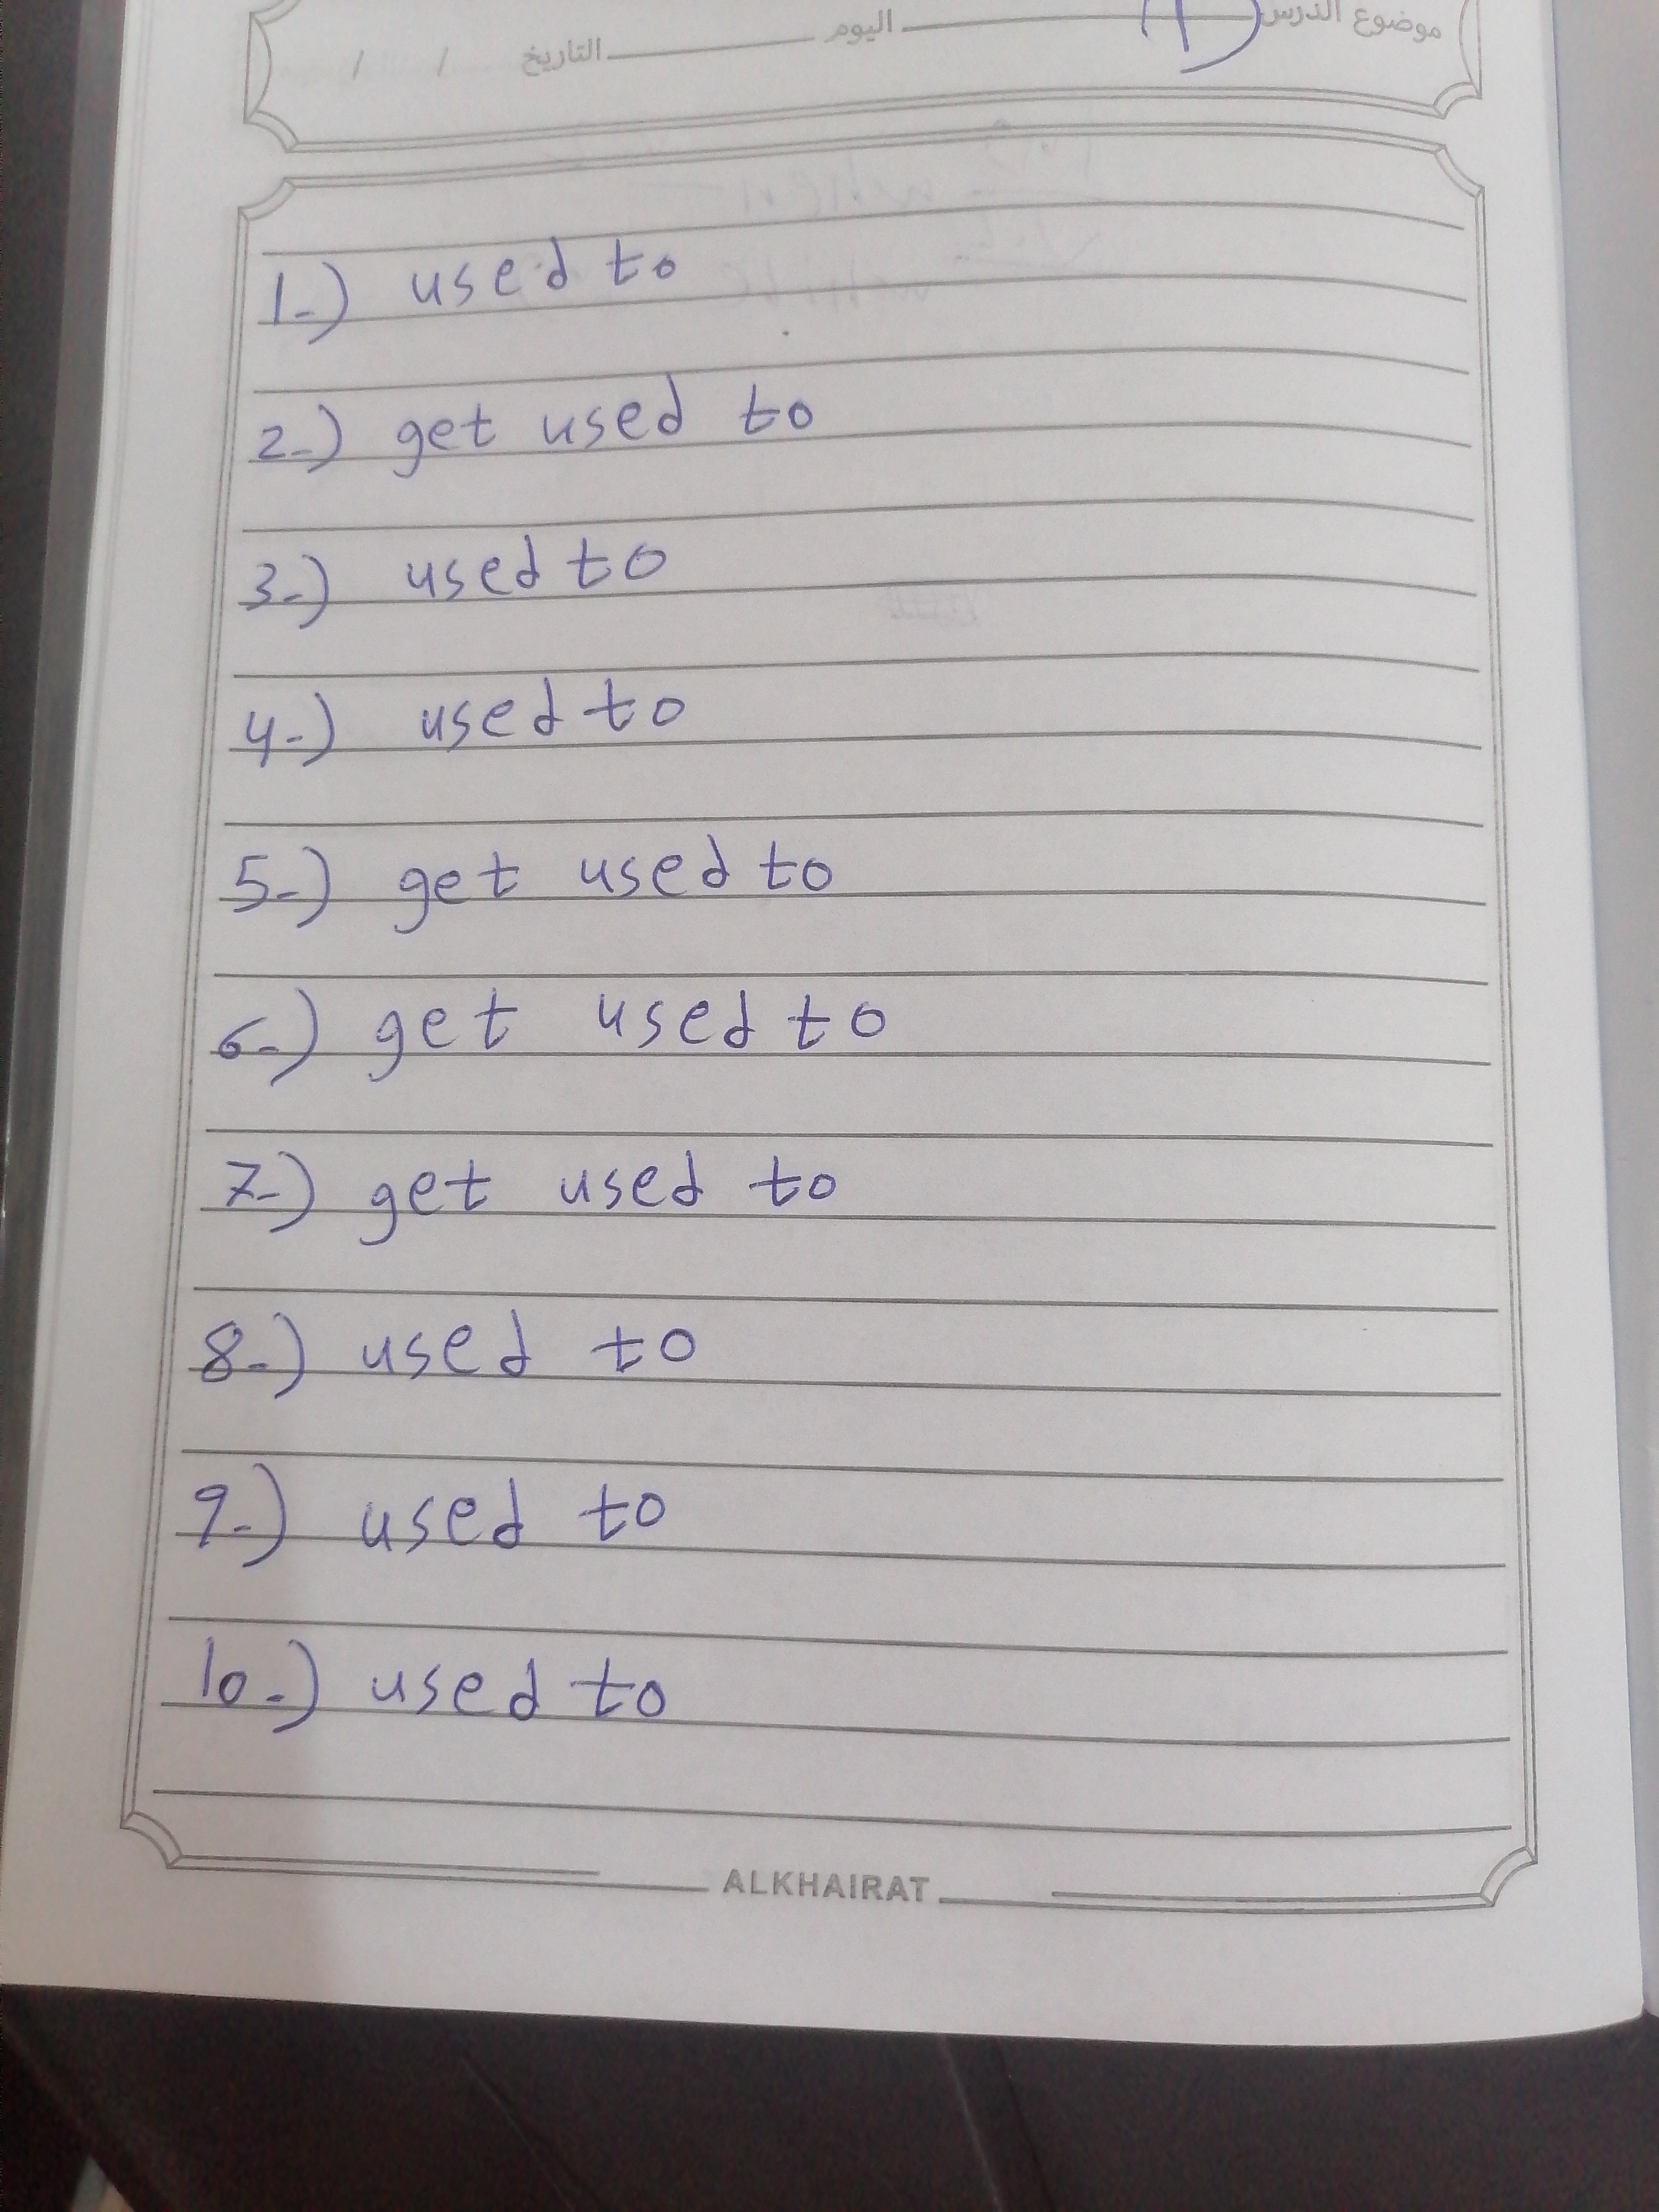 موضوع الدرس اليوم
التاريخ / /
1-) used to
2-) get used to
3-) used to
4-) used to
5-) get used to
6-) get used to
7-) get used to
8-) used to
9-) used to
10-) used to
ALKHAIRAT